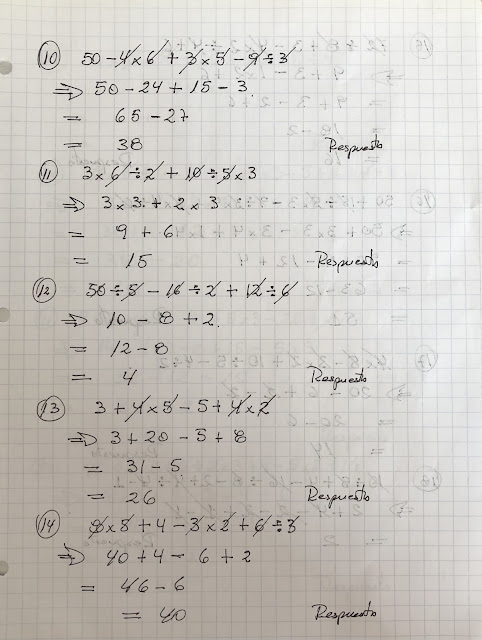 10) 50 - 4 x 6 + 3 x 5 - 9 ÷ 3
⇒ 50 - 24 + 15 - 3
= 65 - 27
= 38 Respuesta
11) 3 x 6 ÷ 2 + 10 ÷ 5 x 3
⇒ 3 x 3 + 2 x 3
= 9 + 6
= 15 Respuesta
12) 50 ÷ 5 - 16 ÷ 2 + 12 ÷ 6
⇒ 10 - 8 + 2.
= 12 - 8
= 4 Respuesta
13) 3 + 4 x 5 - 5 + 4 x 2
⇒ 3 + 20 - 5 + 8
= 31 - 5
= 26 Respuesta
14) 8 x 5 + 4 - 3 x 2 + 6 ÷ 3
⇒ 40 + 4 - 6 + 2
= 46 - 6
= 40 Respuesta